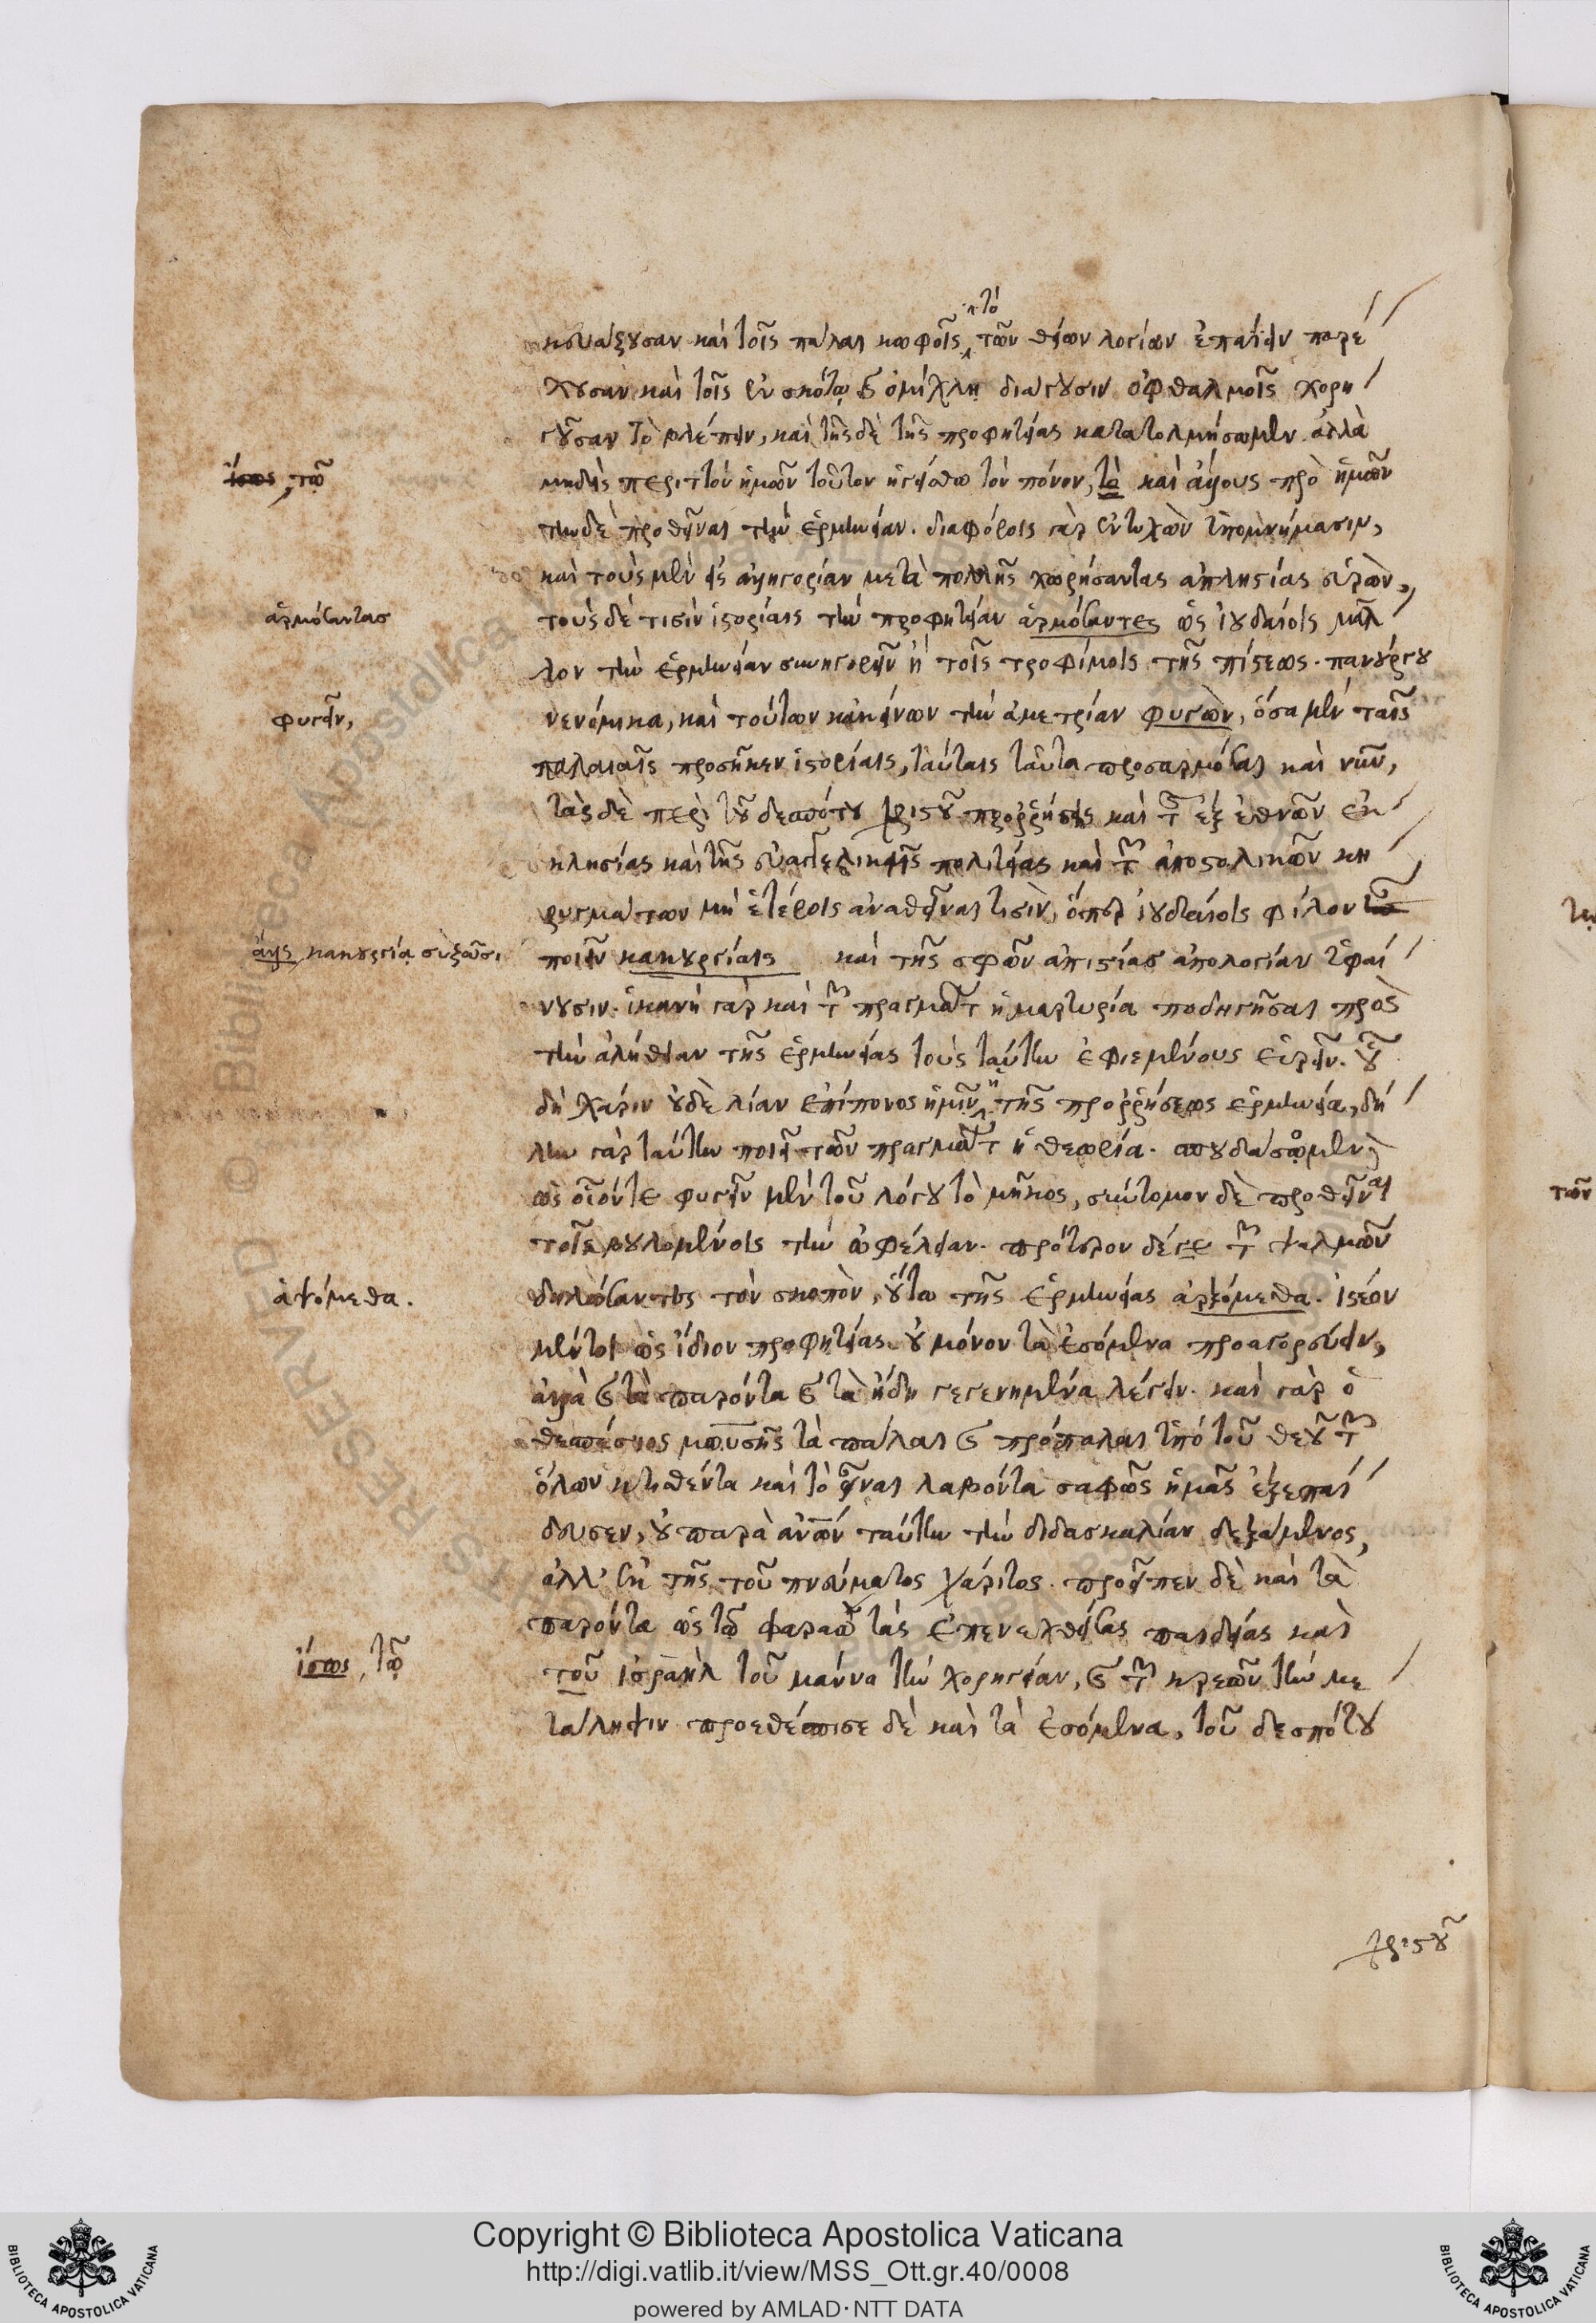 τὸ
κευάζουσαν καὶ τοῖς πάλαι κωφοῖς τῶν θείων λογίων ἐπαΐειν παρέ
χουσαν καὶ τοῖς ἐν σκότῳ καὶ ὁμίχλῃ διάγουσιν ὀφθαλμοῖς χορη
γοῦσαν τὸ βλέπειν, καὶ τῆσδε τῆς προφητείας κατατολμήσωμεν. ἀλλὰ
ἴσως, τῷ
μηδεὶς περιττὸν ἡμῶν τοῦτον ἡγείσθω τὸν πόνον, τὸ καὶ ἄλλους πρὸ ἡμῶν
τήνδε προθεῖναι τὴν ἑρμηνείαν. διαφόροις γὰρ ἐντυχὼν ὑπομνήμασιν,
καὶ τοὺς μὲν εἰς ἀλληγορίαν μετὰ πολλῆς χωρήσαντας ἀπληστίας εὑρὼν,
ἁρμόσαντασ
τοὺς δέ τισιν ἱστορίαις τὴν προφητείαν ἁρμόσαντες ὡς ἰουδαίοις μᾶλ
λον τὴν ἑρμηνείαν συνηγορεῖν ἢ τοῖς τροφίμοις τῆς πίστεως. πανούργου
φυγεῖν,
νενόμικα, καὶ τούτων κἀκείνων τὴν ἀμετρίαν φυγὼν, ὅσα μὲν ταῖς
παλαιαῖς προσῆκεν ἱστορίαις, ταύταις ταῦτα προσαρμόσαι καὶ νῦν,
τὰς δὲ περὶ τοῦ δεσπότου χριστοῦ προῤῥήσεις καὶ τῆς ἐξ ἐθνῶν ἐκ
κλησίας καὶ τῆς εὐαγγελικῆς πολιτείας καὶ τῶν ἀποστολικῶν κη
ρυγμάτων μὴ ἑτέροις ἀναθεῖναι τισὶν, ὅπερ ἰουδαίοις φίλον
ἄλλως κακουργίᾳ συζῶσι
ποιεῖν κακουργίαις καὶ τῆς σφῶν ἀπιστίασ ἀπολογίαν ὑφαί
νουσιν. ἱκανὴ γὰρ καὶ τῶν πραγμάτων ἡ μαρτυρία ποδηγῆσαι πρὸς
τὴν ἀλήθειαν τῆς ἑρμηνείας τοὺς ταύτην ἐφιεμένους εὑρεῖν. οὗ
δὴ χάριν οὐδὲ λίαν ἐπίπονος ἡμῖν ἡ τῆς προῤῥήσεως ἑρμηνεία, δή
λην γὰρ ταύτην ποιεῖ τῶν πραγμάτων ἡ θεωρία. σπουδάσομεν
ὡς οἷόντε φυγεῖν μὲν τοῦ λόγου τὸ μῆκος, σύντομον δὲ προθεῖναι
τοῖς βουλομένοις τὴν ὠφέλειαν. πρότερον δέ γε τῶν ψαλμῶν
ἁψόμεθα.
δηλώσαντες τὸν σκοπὸν, οὕτω τῆς ἑρμηνείας ἀρξόμεθα. ἰστέον
μέντοι ὡς ἴδιον προφητείας οὐ μόνον τὰ ἐσόμενα προαγορεύειν,
ἀλλὰ καὶ τὰ παρόντα καὶ τὰ ἤδη γεγενημένα λέγειν. καὶ γὰρ ὁ
θεσπέσιος μωυσῆς τὰ πάλαι καὶ πρόπαλαι ὑπὸ τοῦ θεοῦ τῶν
ὅλων κτισθέντα καὶ τὸ εἶναι λαβόντα σαφῶς ἡμᾶς ἐξεπαί
δευσεν, οὐ παρὰ ἀνων ταύτην τὴν διδασκαλίαν δεξάμενος,
ἀλλ' ἐκ τῆς τοῦ πνεύματος χάριτος. προεῖπεν δὲ καὶ τὰ
παρόντα ὡς τῷ φαραὼ τὰς ἐπενεχθείσας παιδείας καὶ
ἴσως, τῷ
τοῦ ἰσραὴλ τοῦ μάννα τὴν χορηγείαν, καὶ τῶν κρεῶν τὴν με
τάληψιν προεθέσπισε δὲ καὶ τὰ ἐσόμενα, τοῦ δεσπότου
χριστοῦ
τῶν
Copyright © Biblioteca Apostolica Vaticana
http://digi.vatlib.it/view/MSS_Ott.gr.40/0008
powered by AMLAD·NTT DATA
BIBLIOTECA APOSTOLICA VATICANA
BIBLIOTECA APOSTOLICA VATICANA